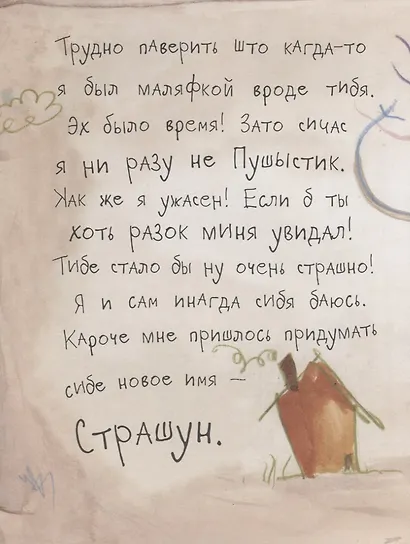 Трудно паверить што кагда-то
я был маляфкой вроде тибя.
Эх было время! Зато сичас
я ни разу не Пушыстик.
Как же я ужасен! Если б ты
хоть разок миня увидал!
Тибе стало бы ну очень страшно!
Я и сам инагда сибя баюсь.
Кароче мне пришлось придумать
сибе новое имя —
Страшун.